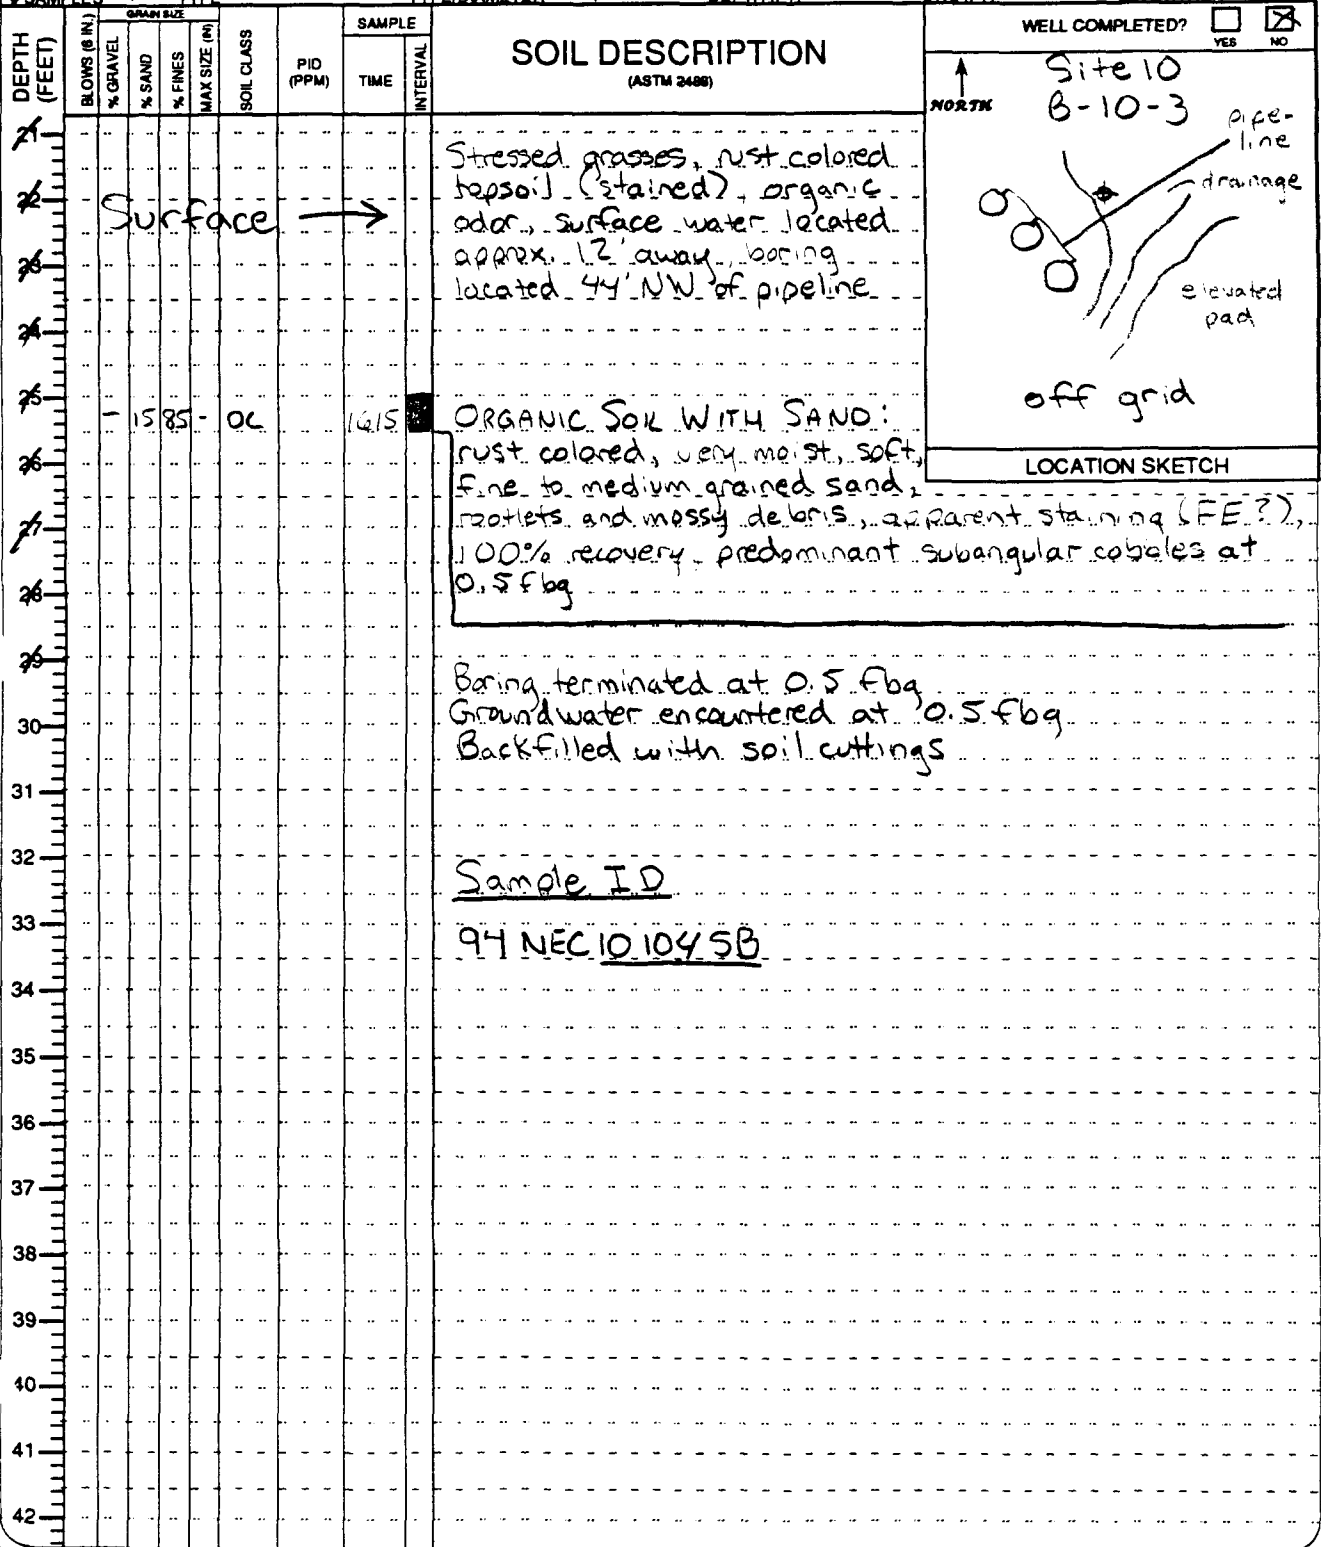 DEPTH (FEET)
BLOWS (6 IN.)
GRAIN SIZE
% GRAVEL
% SAND
% FINES
MAX SIZE (IN)
SOIL CLASS
PID (PPM)
SAMPLE
TIME
INTERVAL
SOIL DESCRIPTION
(ASTM 2488)
WELL COMPLETED?
YES
NO
NORTH
Site 10
B-10-3
pipe-
line
drainage
elevated
pad
off grid
LOCATION SKETCH
21
22
23
24
25
26
27
28
29
30
31
32
33
34
35
36
37
38
39
40
41
42
Surface
Stressed grasses, rust colored
topsoil (stained), organic
odor, surface water located
approx. 12' away, boring
located 44' NW of pipeline
- 15 85 - OL 1615
ORGANIC SOIL WITH SAND:
rust colored, very moist, soft,
fine to medium grained sand,
rootlets and mossy debris, apparent staining (FE?),
100% recovery, predominant subangular cobbles at
0.5 fbg
Boring terminated at 0.5 fbg
Groundwater encountered at 0.5 fbg
Backfilled with soil cuttings
Sample ID
94 NEC 10 104 SB